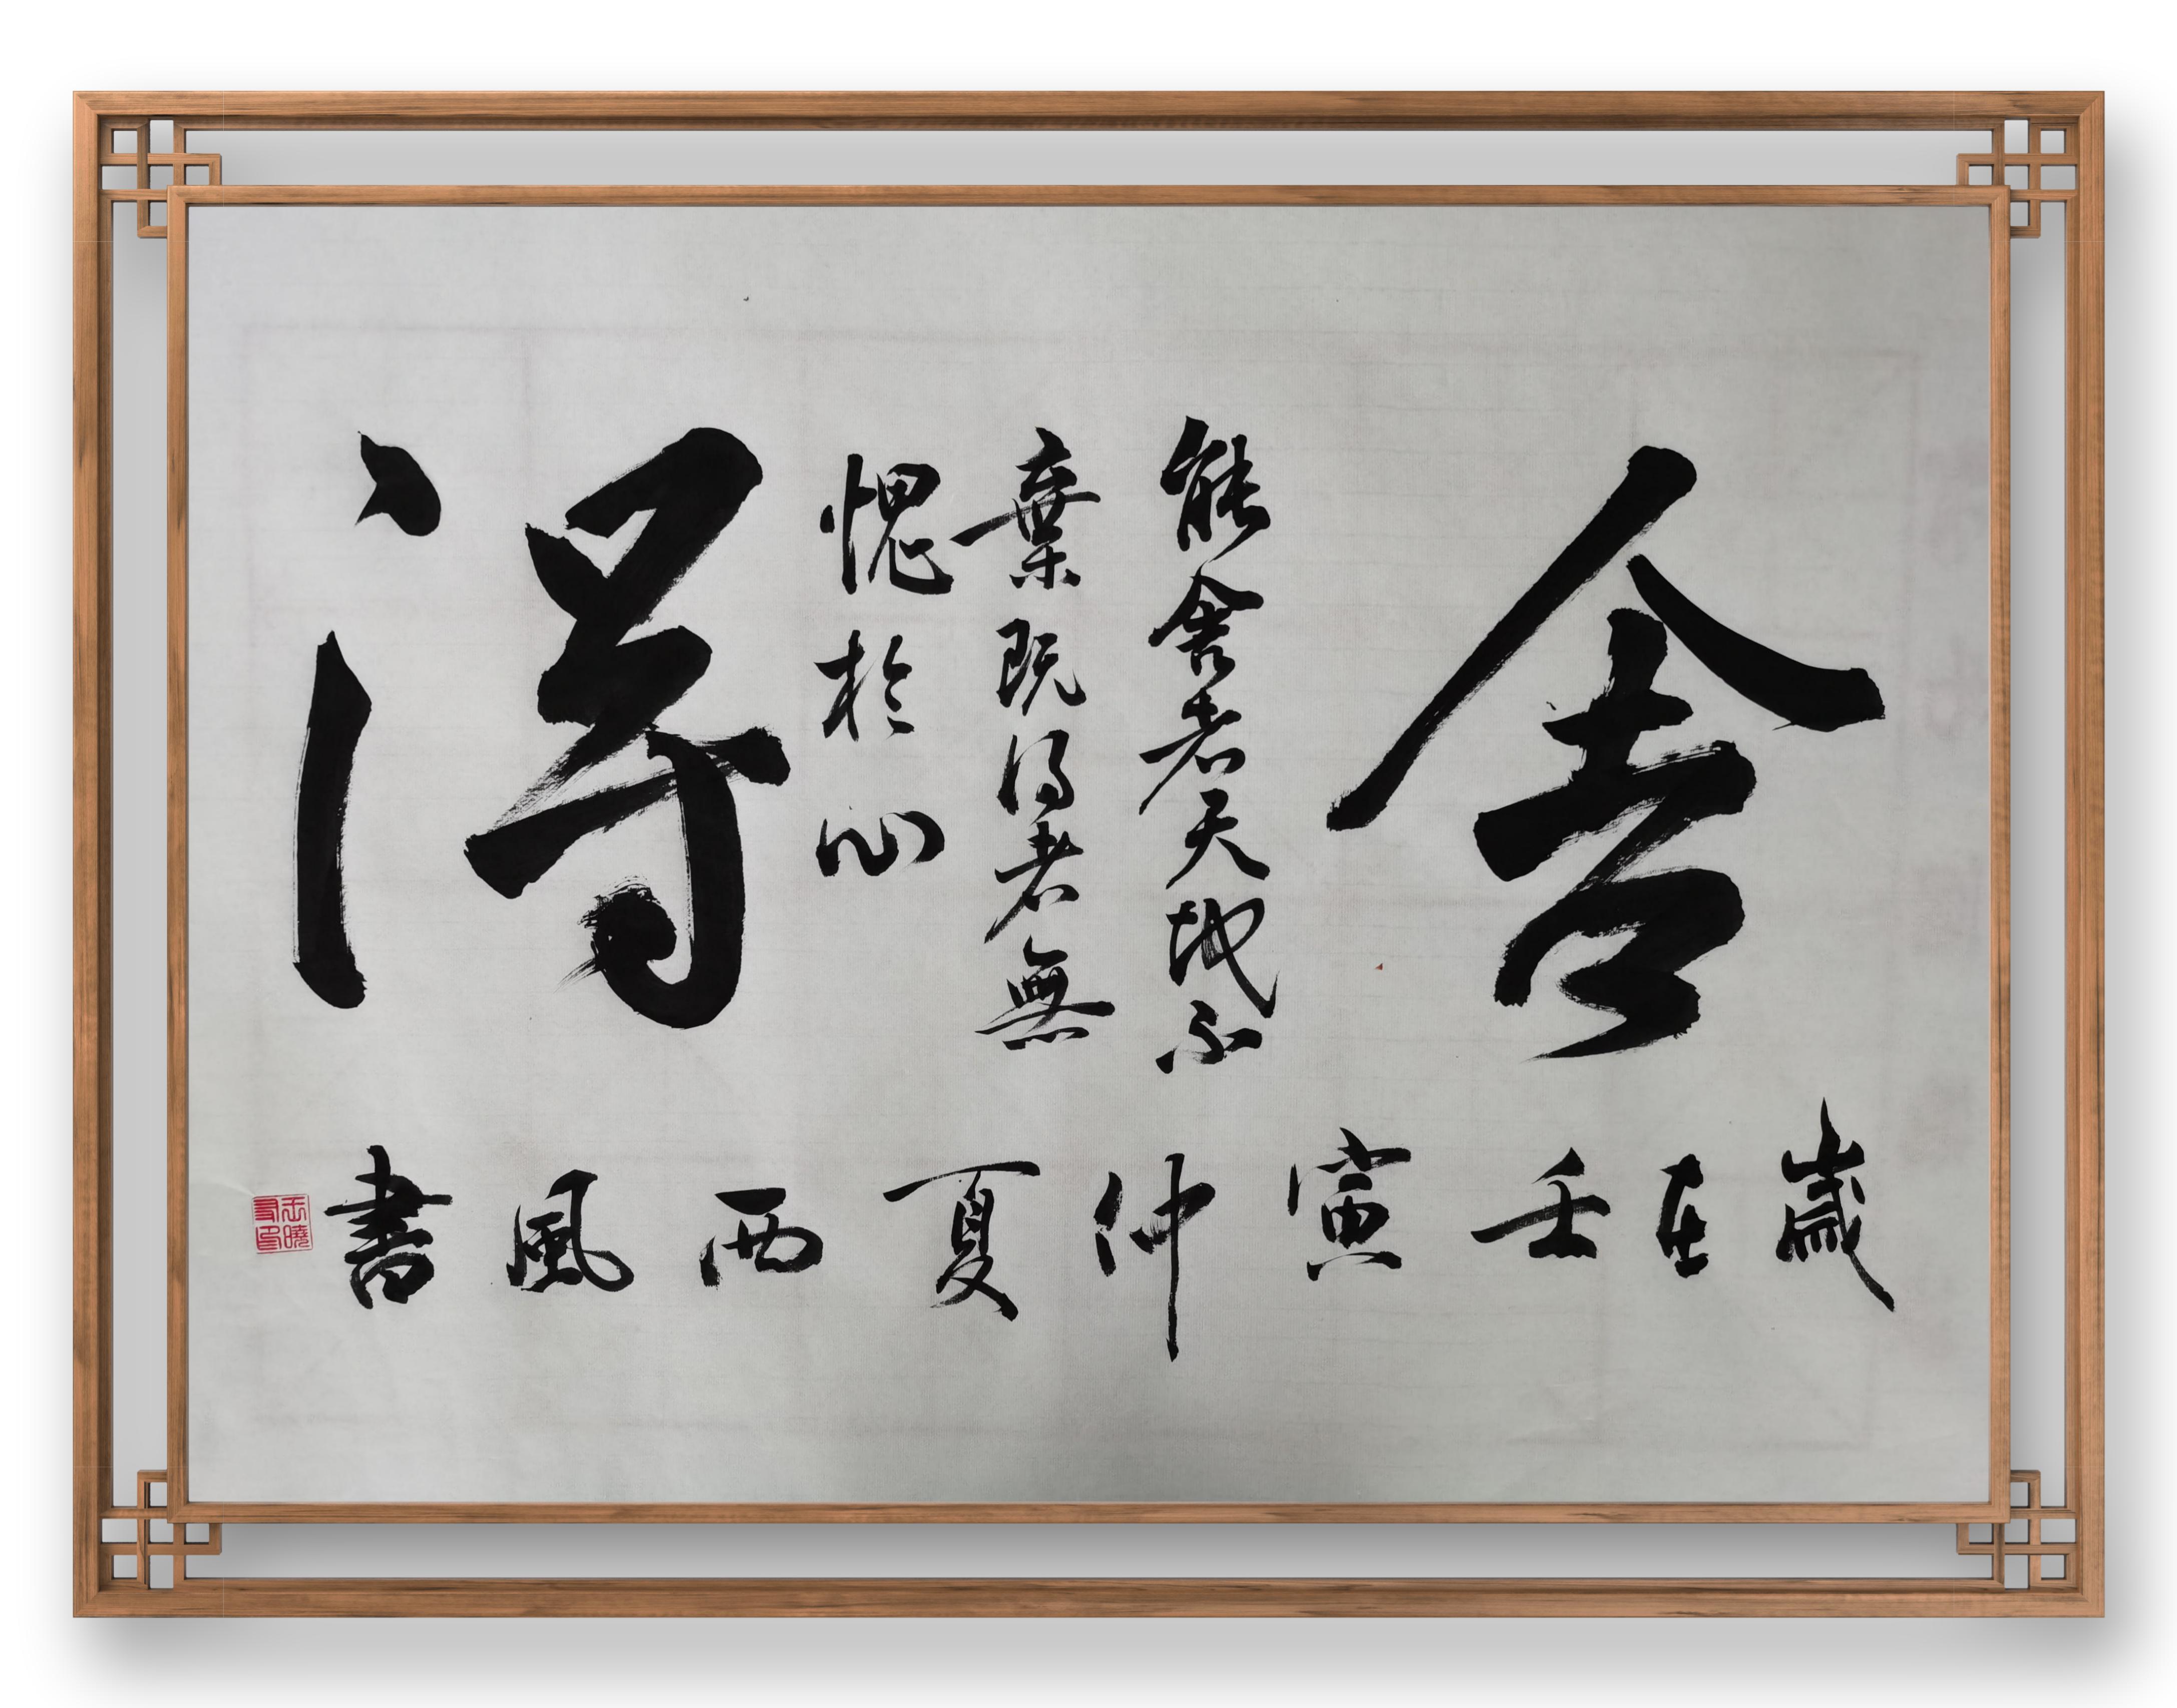 舍
能舍者天地不
棄既得者無
愧於心
得
歲在壬寅仲夏西風書